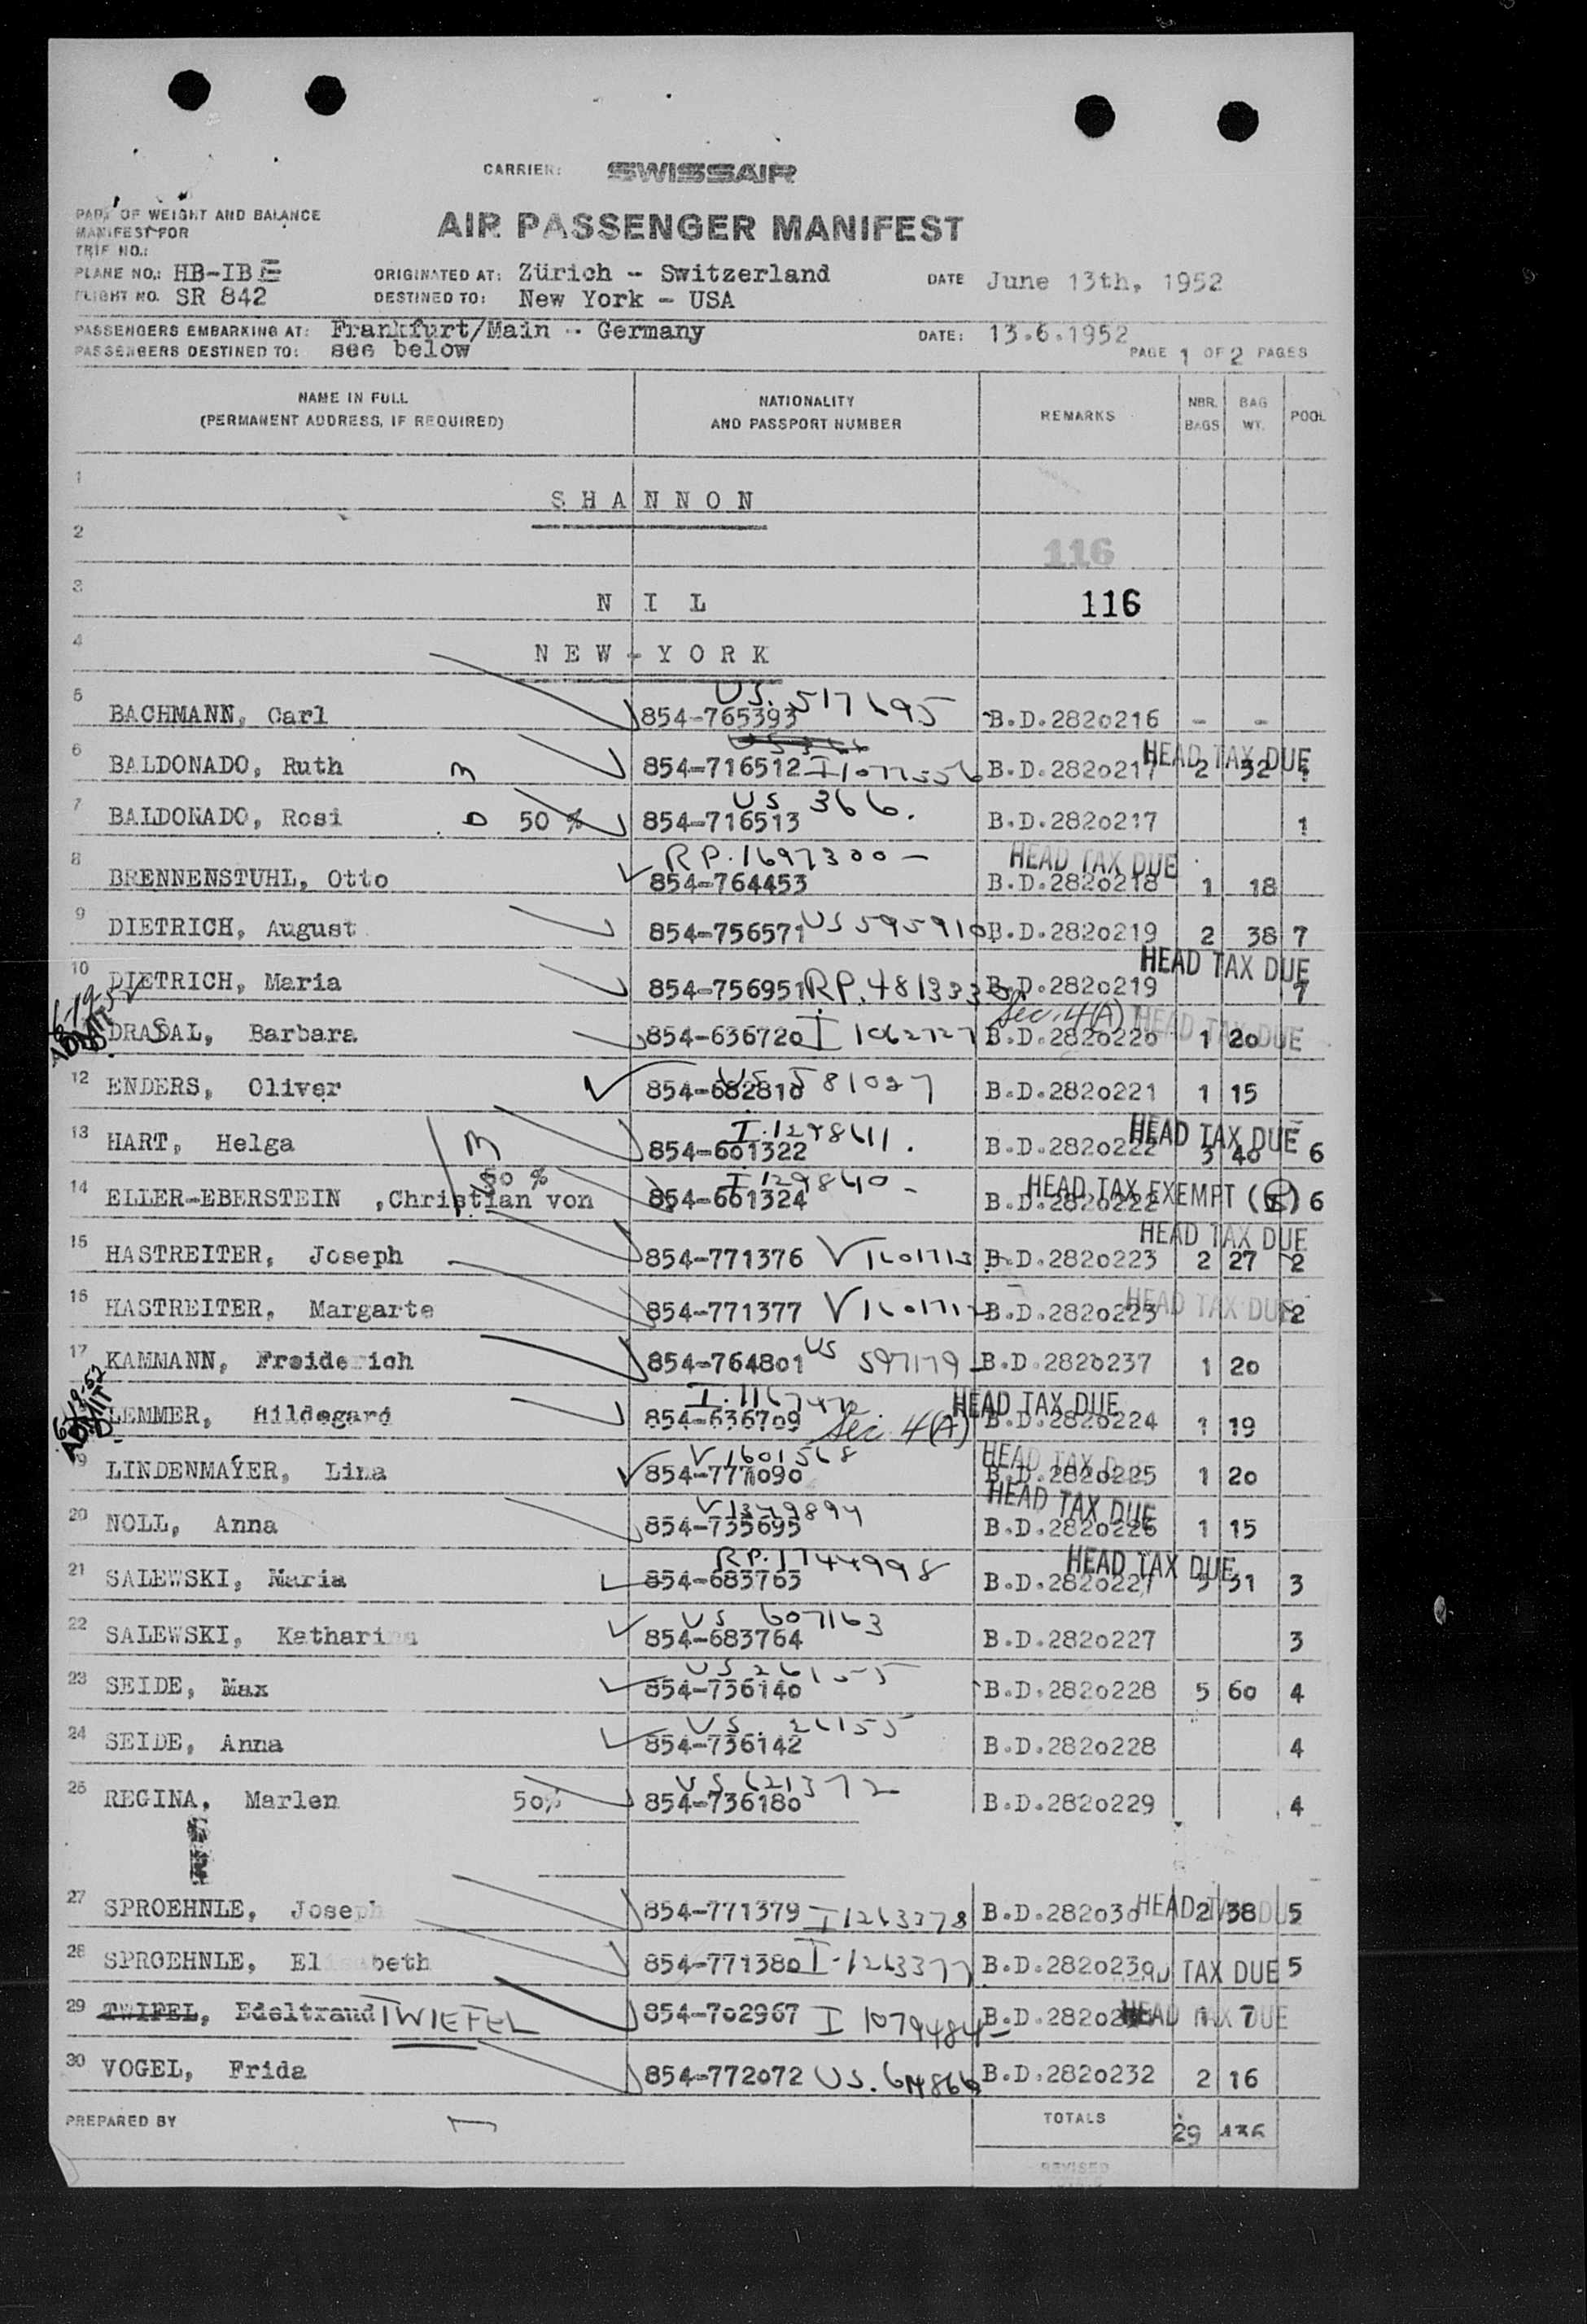 CARRIER: SWISSAIR
PART OF WEIGHT AND BALANCE
MANIFEST FOR
AIR PASSENGER MANIFEST
TRIP NO.:
PLANE NO.: HB-IBE ORIGINATED AT: Zürich - Switzerland DATE June 13th, 1952
FLIGHT NO. SR 842 DESTINED TO: New York - USA
PASSENGERS EMBARKING AT: Frankfurt/Main - Germany DATE: 13.6.1952
PASSENGERS DESTINED TO: see below PAGE 1 OF 2 PAGES
NAME IN FULL NATIONALITY REMARKS NBR. BAG POOL
(PERMANENT ADDRESS, IF REQUIRED) AND PASSPORT NUMBER BAGS WT.
1
SHANNON
2
116
3
NIL 116
4
NEW-YORK
US. 517695
5 BACHMANN, Carl 854-765393 B.D.2820216 - -
HEAD TAX DUE
6 BALDONADO, Ruth M 854-716512 I1077556 B.D.2820217 2 32 1
US 366.
7 BALDONADO, Rosi D 50 % 854-716513 B.D.2820217 1
RP.1697300- HEAD TAX DUE
8 BRENNENSTUHL, Otto 854-764453 B.D.2820218 1 18
9 DIETRICH, August 854-756571 US 595910 B.D.2820219 2 38 7
HEAD TAX DUE
10 DIETRICH, Maria 854-756951 RP.481333 B.D.2820219 7
6-19-52 ADMIT Sec. 4(A) HEAD TAX DUE
DRASAL, Barbara 854-636720 I 1062727 B.D.2820220 1 20
12 ENDERS, Oliver 854-682810 US 581027 B.D.2820221 1 15
HEAD TAX DUE
13 HART, Helga M 854-601322 B.D.2820222 3 40 6
50 % I 129840- HEAD TAX EXEMPT
14 ELLER-EBERSTEIN ,Christian von 854-601324 B.D.2820222 6
HEAD TAX DUE
15 HASTREITER, Joseph 854-771376 V1601713 B.D.2820223 2 27 2
HEAD TAX DUE
16 HASTREITER, Margarte 854-771377 V160171 B.D.2820223 2
17 KAMMANN, Freiderich 854-764801 US 597179 B.D.2820237 1 20
6-13-52 ADMIT HEAD TAX DUE
LEMMER, Hildegard 854-636709 Sec. 4(A) B.D.2820224 1 19
V1601568 HEAD TAX DUE
19 LINDENMAYER, Lina 854-777090 B.D.2820225 1 20
V1349894 HEAD TAX DUE
20 NOLL, Anna 854-735695 B.D.2820226 1 15
RP.1744998 HEAD TAX DUE
21 SALEWSKI, Maria 854-683763 B.D.2820227 3 31 3
US 607163
22 SALEWSKI, Katharina 854-683764 B.D.2820227 3
23 SEIDE, Max 854-736140 B.D.2820228 5 60 4
US. 26155
24 SEIDE, Anna 854-736142 B.D.2820228 4
US 621372
25 REGINA, Marlen 50% 854-736180 B.D.2820229 4
27 SPROEHNLE, Joseph 854-771379 I1263378 B.D.2820230 HEAD TAX DUE 2 38 5
28 SPROEHNLE, Elisabeth 854-771380 I-1263377 B.D.2820230 HEAD TAX DUE 5
29 TWIFEL, Edeltraud TWIEFEL 854-702967 I 1079484- HEAD TAX DUE 1 7
30 VOGEL, Frida 854-772072 US. B.D.2820232 2 16
PREPARED BY TOTALS 29 436
REVISED